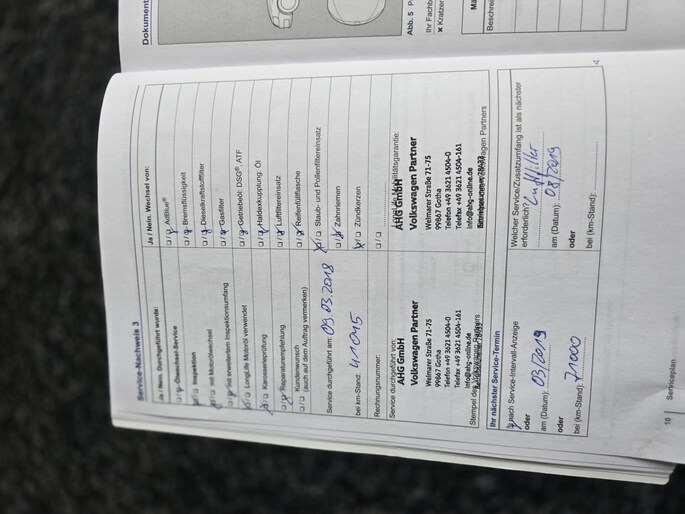 Dokument
Abb. 5
Ihr Fachb
✗ Kratzer
Beschrei
Service-Nachweis 3
Ja / Nein. Durchgeführt wurde:
Ölwechsel-Service
Inspektion
mit Motorölwechsel
mit erweitertem Inspektionsumfang
LongLife Motoröl verwendet
Karosserieprüfung
Reparaturempfehlung
Kundenwunsch
(auch auf dem Auftrag vermerken)
Service durchgeführt am: 09.03.2018
bei km-Stand: 41045
Rechnungsnummer:
Service durchgeführt von:
AHG GmbH
Volkswagen Partner
Weimarer Straße 71-75
99867 Gotha
Telefon +49 3621 4504-0
Telefax +49 3621 4504-161
info@ahg-online.de
Stempel des
Ja / Nein. Wechsel von:
AdBlue®
Bremsflüssigkeit
Dieselkraftstofffilter
Gasfilter
Getriebeöl: DSG®, ATF
Haldexkupplung: Öl
Luftfiltereinsatz
Reifenfüllflasche
Staub- und Pollenfiltereinsatz
Zahnriemen
Zündkerzen
AHG GmbH
Volkswagen Partner
Weimarer Straße 71-75
99867 Gotha
Telefon +49 3621 4504-0
Telefax +49 3621 4504-161
info@ahg-online.de
Ihr nächster Service-Termin
nach Service-Intervall-Anzeige
oder
am (Datum): 03/2019
oder
bei (km-Stand): 71000
Welcher Service/Zusatzumfang ist als nächster
erforderlich? Luftfilter
am (Datum): 08/2019
oder
bei (km-Stand):
10
Serviceplan